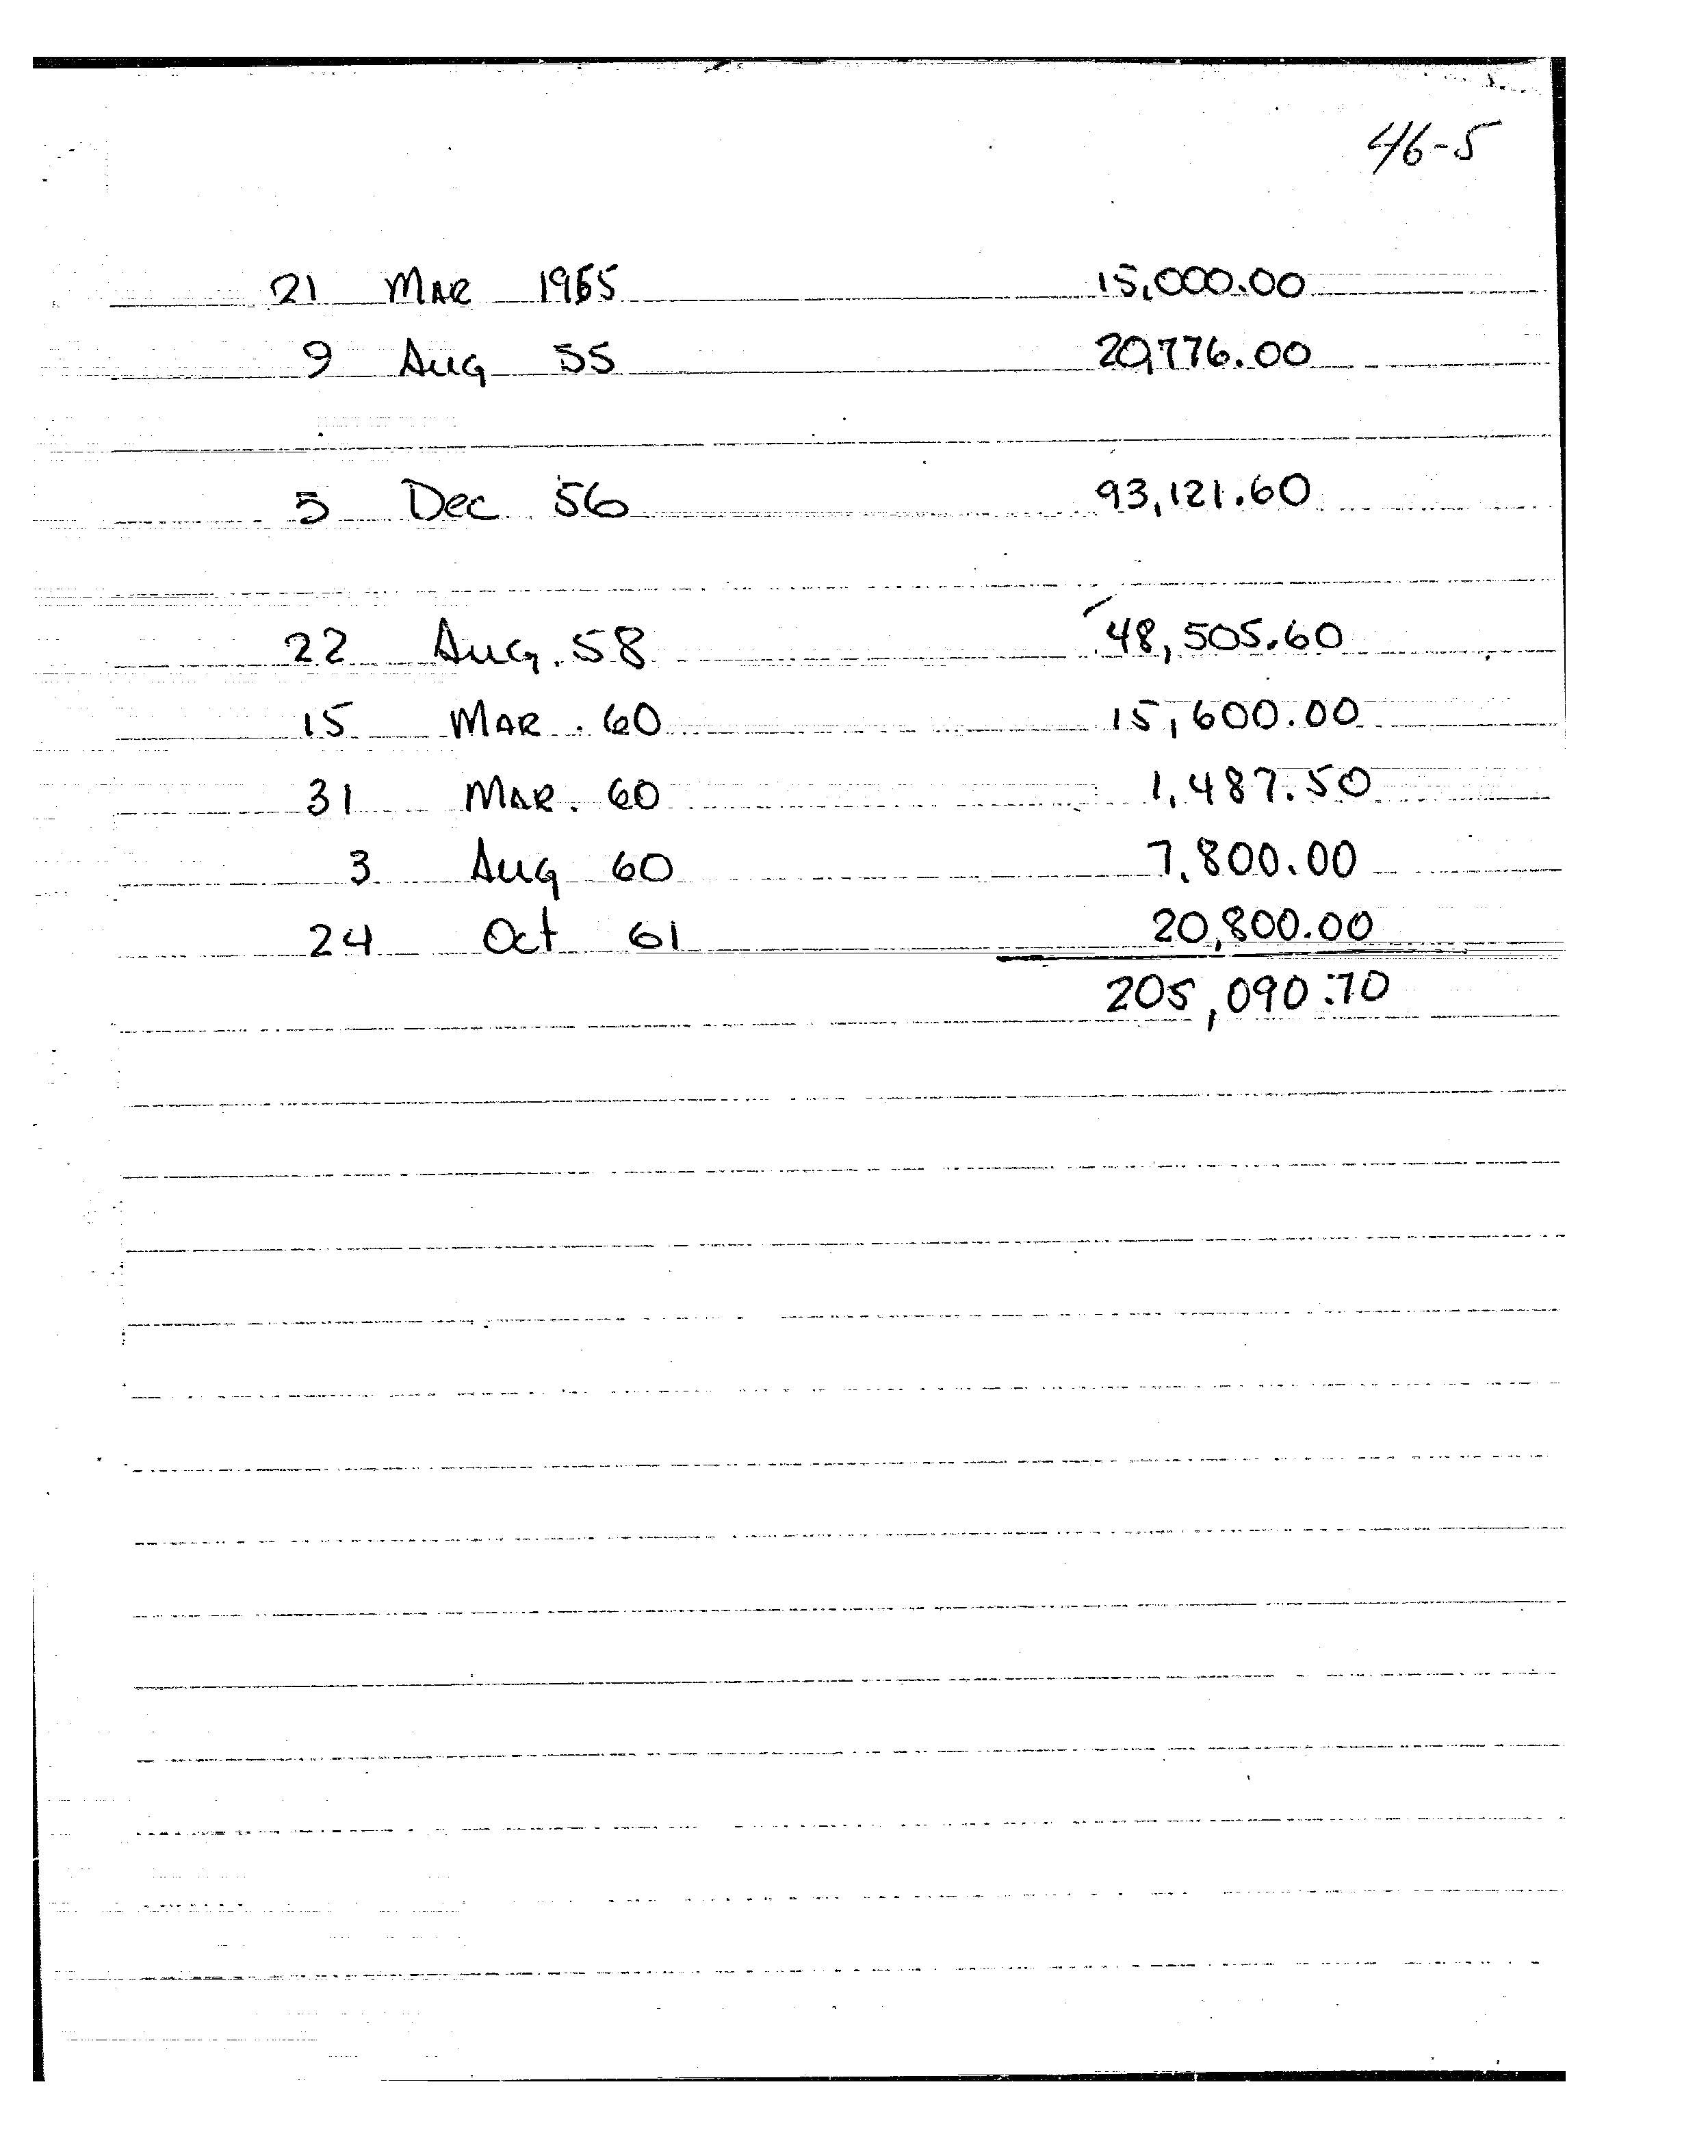 46-5
21 MAR 1955 15,000.00
9 Aug 55 20,776.00
5 Dec 56 93,121.60
22 Aug. 58 48,505.60
15 MAR. 60 15,600.00
31 MAR. 60 1,487.50
3 Aug 60 7,800.00
24 Oct 61 20,800.00
205,090.70